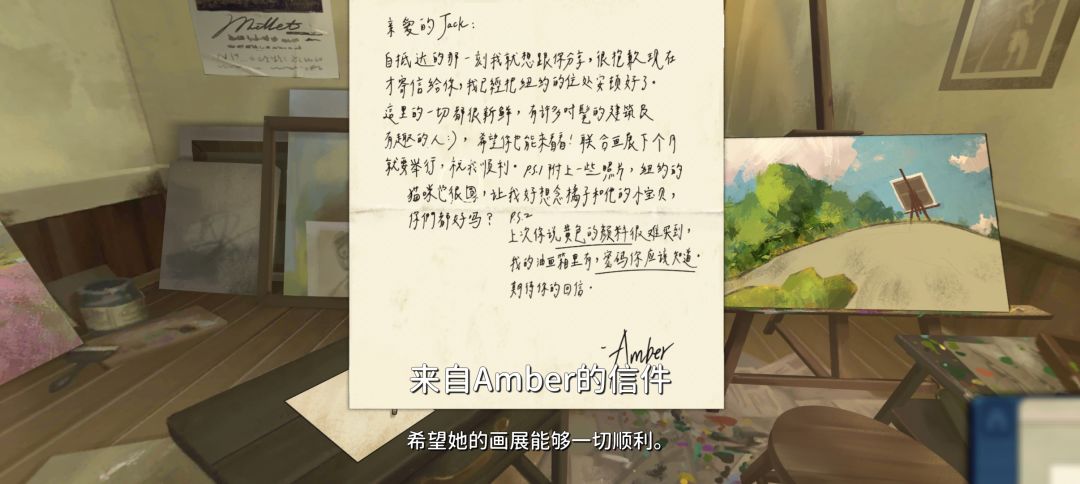 Millet
亲爱的Jack:
自抵达的那一刻我就想跟你分享,很抱歉现在
才寄信给你,我已經把纽约的住处安顿好了。
這里的一切都很新鲜,有许多时髦的建筑及
有趣的人:),希望你也能来看看!联合画展下个月
就要举行,祝我顺利。PS.1附上一些照片,纽约的
猫咪也很圆,让我好想念橘子和他的小宝贝,
你們都好吗?
PS.2
上次你说黄色的颜料很难买到,
我的油画箱里有,密码你应该知道。
期待你的回信。
-Amber
来自Amber的信件
希望她的画展能够一切顺利。